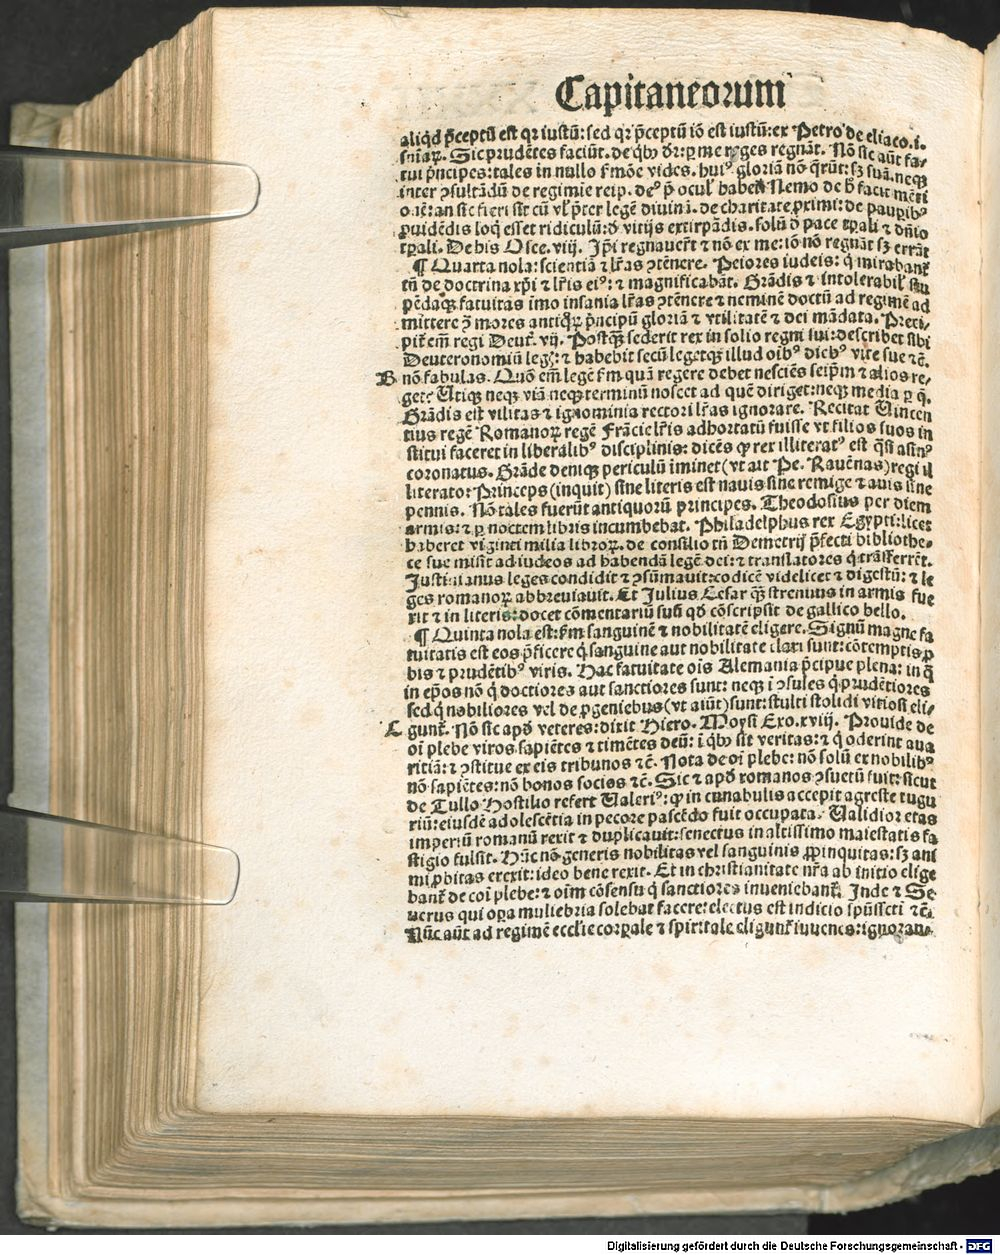 Capitaneorum
aliqđ p̄ceptū est qꝛ iustū: sed qꝛ p̄ceptū iō est iustū: ex Petro de eliaco. i.
Sic prudētes faciūt. de qͥbꝰ dꝛ: ꝑ me reges regnāt. Nō sic aūt fa⸗
tui pͥncipes: tales in nullo vides. huiꝰ gloriā nō q̄rūt: sꝫ suā. neqꝫ
inter ꝯsultādū de regimie reip. deū p̄ ocul habēt Nemo de facit mēti
onē: an sic fieri sit cū vl' p̄ter legē diuinā. de charitate ꝓximi: de pauꝑibꝰ
ꝓuidēdis loq̄ esset ridiculū: đ vitijs extirpādis. solū đ pace tꝑali ⁊ dn̄io
tꝑali. De his Osce. viij. Ip̄i regnauerūt ⁊ nō ex me: iō nō regnāt sꝫ errāt
¶ Quarta nola: scientiā ⁊ lr̄as ꝯtēnere. Peiores iudeis: q̇ mirabant̄
tn̄ de doctrina xp̄i ⁊ lr̄is eiꝰ: ⁊ magnificabāt. Grādis ⁊ intolerabil' stu
pēdaqꝫ fatuitas imo insania lr̄as ꝯtēnere ⁊ neminē doctū ad regimē ad
mittere ꝯ̄ mores antiq̄ꝝ pͥncipū gloriā ⁊ vtilitatē ⁊ dei mādata. Preci⸗
pit em̄ regi Deut̄. vij. Postqꝫ sederit rex in solio regni sui: describet sibi
Deuteronomiū leg: ⁊ habebit secū legetqꝫ illud oībꝰ diebꝰ vite sue ⁊č.
B nō fabulas. Quō em̄ legē fm̄ quā regere debet nesciēs seip̄m ⁊ alios re⸗
get? Utiqꝫ neqꝫ viā neqꝫ terminū nosset ad quē diriget: neqꝫ media ꝑ q̄.
Grādis est vilitas ⁊ ignominia rectori lr̄as ignorare. Recitat Uincen
tius regē Romanoꝝ regē Frācie lr̄is adhortatū fuisse vt filios suos in
stitui faceret in liberalibꝰ disciplinis: dicēs ꝙ rex illiteratꝰ est q̄si asinꝰ
coronatus. Grāde deniqꝫ periculū īminet (vt ait Pe. Rauēnas) regi il
literato: Princeps (inquit) sine literis est nauis sine remige ⁊ auis sine
pennis. Nō tales fuerūt antiquorū principes. Theodosius per diem
armis: ⁊ ꝑ noctem libris incumbebat. Philadelphus rex Egypti: licet
haberet viginti milia libroꝝ. de consilio tn̄ Demetrij p̄fecti bibliothe⸗
ce sue misit ad iudeos ad habendā legē dei: ⁊ translatores q̇ trāsferrēt.
Justinianus leges condidit ⁊ ꝯsūmauit: codicē videlicet ⁊ digestū: ⁊ le
ges romanoꝝ abbreuiauit. Et Julius Cesar qꝫ̄ strenuus in armis fue
rit ⁊ in literis: docet cōmentariū suū qđ cōscripsit de gallico bello.
¶ Quinta nola est: fm̄ sanguinē ⁊ nobilitatē eligere. Signū magne fa
tuitatis est eos p̄ficere q̇ sanguine aut nobilitate clari sunt: cōtemptis ꝓ
bis ⁊ prudētibꝰ viris. Hac fatuitate oīs Alemania p̄cipue plena: in q̄
in ep̄os nō q̇ doctiores aut sanctiores sunt: neqꝫ ī ꝯsules q̇ prudētiores
sed q̇ nobiliores vel de ꝓgeniebus (vt aiūt) sunt: stulti stolidi vitiosi eli⸗
C gunt̄. Nō sic apđ veteres: dixit Hiero. Moysi Exo. xviij. Prouide de
oī plebe viros sapiētes ⁊ timētes deū: ī qͥbꝰ sit veritas: ⁊ q̇ oderint aua
ritiā: ⁊ ꝯstitue ex eis tribunos ⁊č. Nota de oī plebe: nō solū ex nobilibꝰ
nō sapiētes: nō bonos socios ⁊č. Sic ⁊ apđ romanos ꝯsuetū fuit: sicut
de Tullo Hostilio refert Ualeriꝰ: ꝙ in cunabulis accepit agreste tugu
riū: eiusdē adolescētia in pecore pascēdo fuit occupata. Ualidior etas
imperiū romanū rexit ⁊ duplicauit: senectus in altissimo maiestatis fa
stigio fulsit. Hūc nō generis nobilitas vel sanguinis ꝓpinquitas: sꝫ ani
mi ꝓbitas erexit: ideo bene rexit. Et in christianitate nr̄a ab initio elige
bant̄ de coī plebe: ⁊ oīm cōsensu q̇ sanctiores inueniebant̄. Inde ⁊ Se
uerus qui oꝑa muliebria solebat facere: electus est indicio sp̄ūsscti ⁊č.
Nūc aūt ad regimē ecclie corꝑale ⁊ spiritale eligunt̄ iuuenes: ignoran⸗
Digitalisierung gefördert durch die Deutsche Forschungsgemeinschaft - DFG